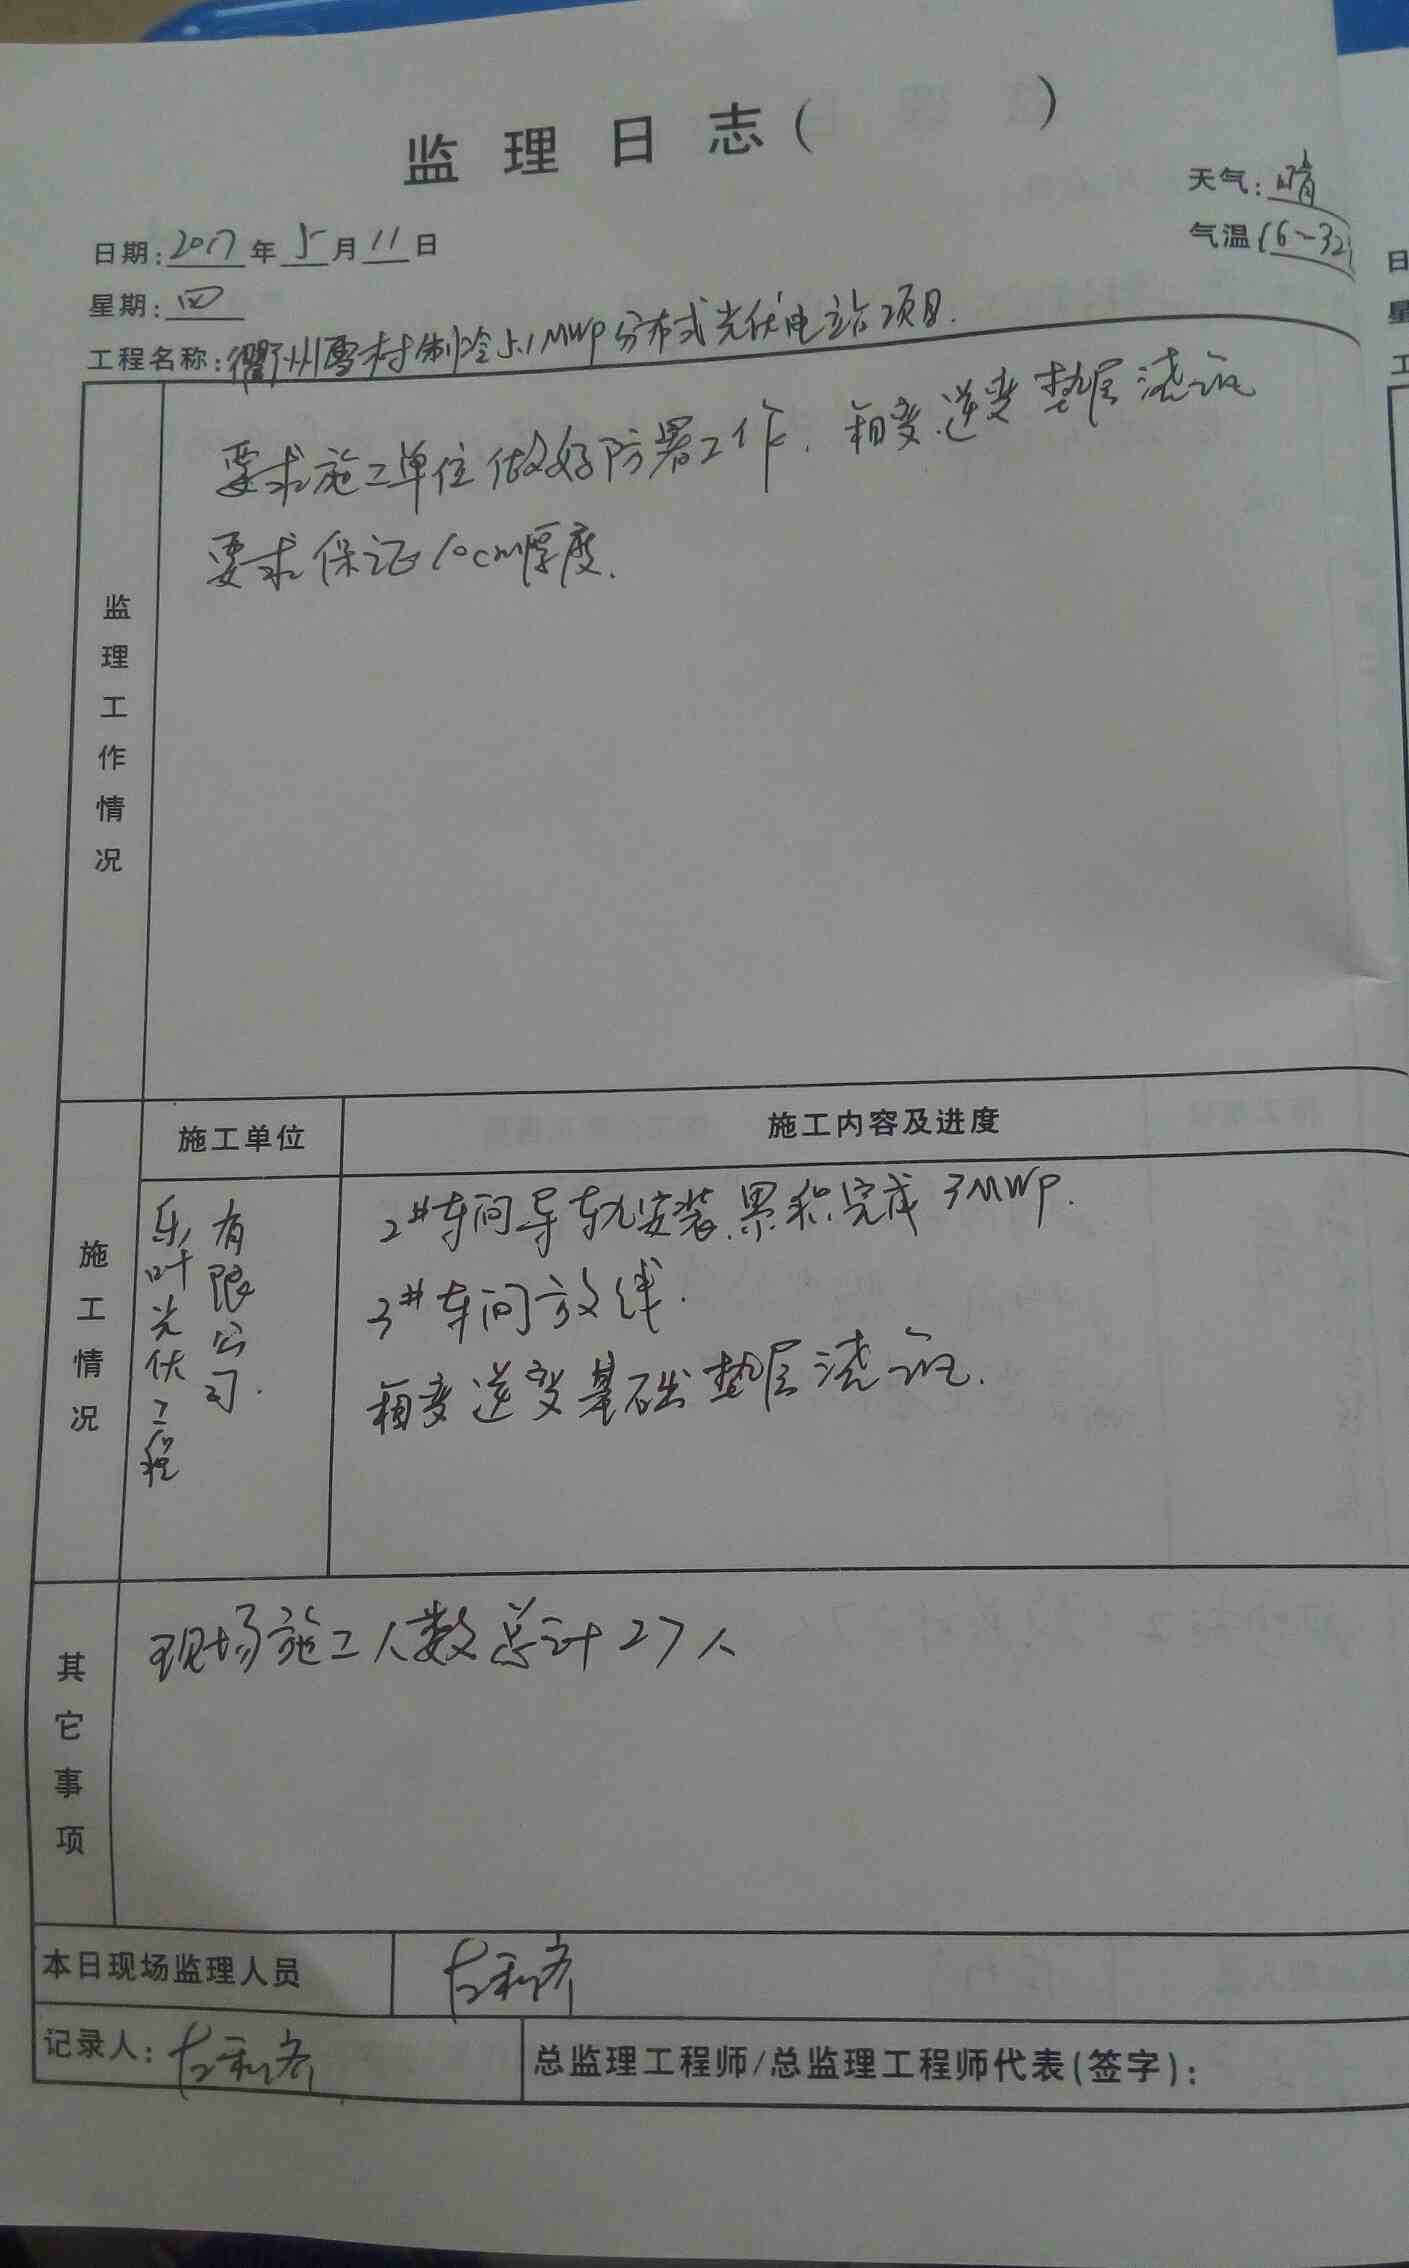 监理日志（ ）
天气：晴
日期：2017年5月11日
气温16~32
星期：四
工程名称：衢州雪村制冷5.1MWp分布式光伏电站项目.
监理工作情况
要求施工单位做好防署工作.箱变.逆变垫层浇筑
要求保证10cm厚度.
施工情况
施工单位
施工内容及进度
乐叶光伏工程
有限公司.
2#车间导轨安装.累积完成3MWP.
3#车间放线.
箱变逆变基础垫层浇筑.
其它事项
现场施工人数总计27人
本日现场监理人员
记录人：
总监理工程师/总监理工程师代表(签字)：
日
星
工